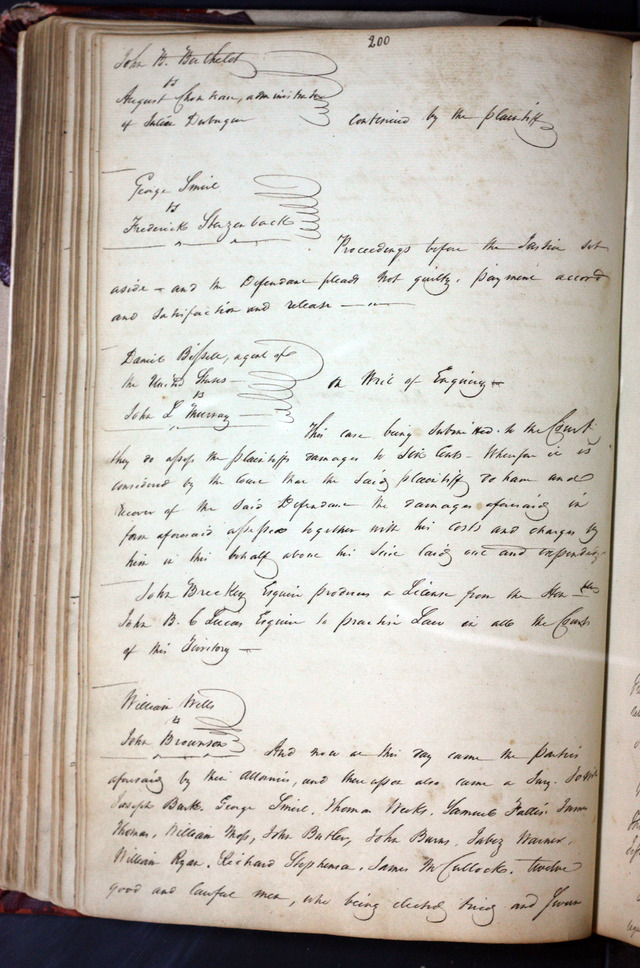 200
John B. Berthelot
vs
August Chouteau, administrator
of Julien Dubuque
continued by the plaintiff
George Smirl
vs
Frederick Starzenback
Proceedings before the Justice set
aside – and the Defendant pleads Not guilty, payment accord
and satisfaction and release –
Daniel Bissell, agent of
the United States
vs
John L Murray
on Writ of Enquiry –
This case being submitted to the Court
they do assess the plaintiffs damages to six cents – Wherefore it is
considered by the court that the said plaintiff do have and
recover of the said Defendant the damages aforesaid in
form aforesaid assessed together with his costs and charges by
him in this behalf about his suit laid out and expended
John Breckey Esquire produces a License from the Hon – ble
John B. C Lucas Esquire to practice Law in all the Courts
of this Territory –
William Wills
vs
John Brounson
And now at this day came the parties
aforesaid by their attornies, and thereupon also came a Jury. To wit
Joseph Bark. George Smirl. Thomas Weeks. Samuel Fallis.
Thomas, William Moss, John Butler, John Burns, Jabez Warner,
William Ryan, Richard Stephenson, James McCullock. twelve
good and lawful men, who being elected tried and sworn